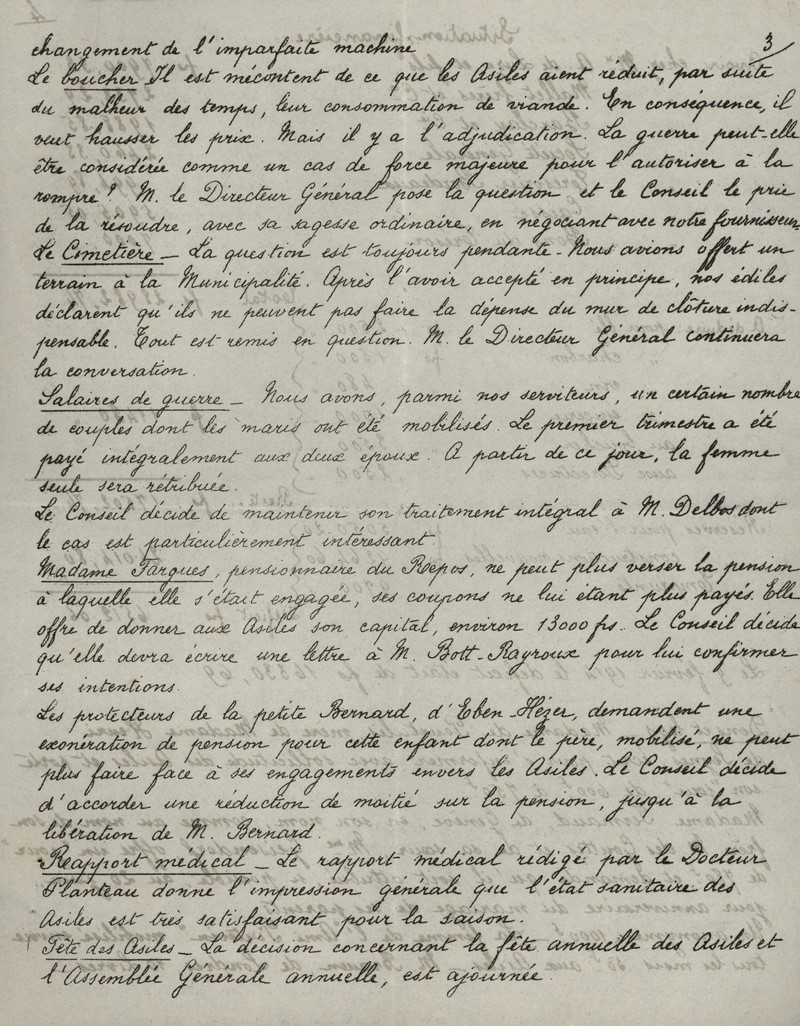 3
changement de l'imparfaite machine
Le boucher Il est mécontent de ce que les Asiles aient réduit, par suite
du malheur des temps, leur consommation de viande. En conséquence, il
veut hausser les prix. Mais il y a l'adjudication. La guerre peut-elle
être considérée comme un cas de force majeure pour l'autoriser à la
rompre? M. le Directeur Général pose la question et le Conseil le prie
de la résoudre, avec sa sagesse ordinaire, en négociant avec notre fournisseur.
Le Cimetière _ La question est toujours pendante - Nous avions offert un
terrain à la Municipalité. Après l'avoir accepté en principe, nos édiles
déclarent qu'ils ne peuvent pas faire la dépense du mur de clôture indis-
pensable. Tout est remis en question. M. le Directeur Général continuera
la conversation.
Salaires de guerre _ Nous avons, parmi nos serviteurs, un certain nombre
de couples dont les maris ont été mobilisés. Le premier trimestre a été
payé intégralement aux deux époux. A partir de ce jour, la femme
seule sera rétribuée.
Le Conseil décide de maintenir son traitement intégral à M. Delbos dont
le cas est particulièrement intéressant
Madame Fargues, pensionnaire du Repos, ne peut plus verser la pension
à laquelle elle s'était engagée, ses coupons ne lui étant plus payés. Elle
offre de donner aux Asiles son capital, environ 13000 fs.. Le Conseil décide
qu'elle devra écrire une lettre à M. Bott-Rayroux pour lui confirmer
ses intentions.
Les protecteurs de la petite Bernard, d'Eben-Hézer, demandent une
exonération de pension pour cette enfant dont le père, mobilisé, ne peut
plus faire face à ses engagements envers les Asiles. Le Conseil décide
d'accorder une réduction de moitié sur la pension, jusqu'à la
libération de M. Bernard.
Rapport médical _ Le rapport médical rédigé par le Docteur
Planteau donne l'impression générale que l'état sanitaire des
Asiles est très satisfaisant pour la saison.
Fête des Asiles _ La décision concernant la fête annuelle des Asiles et
l'Assemblée Générale annuelle, est ajournée.